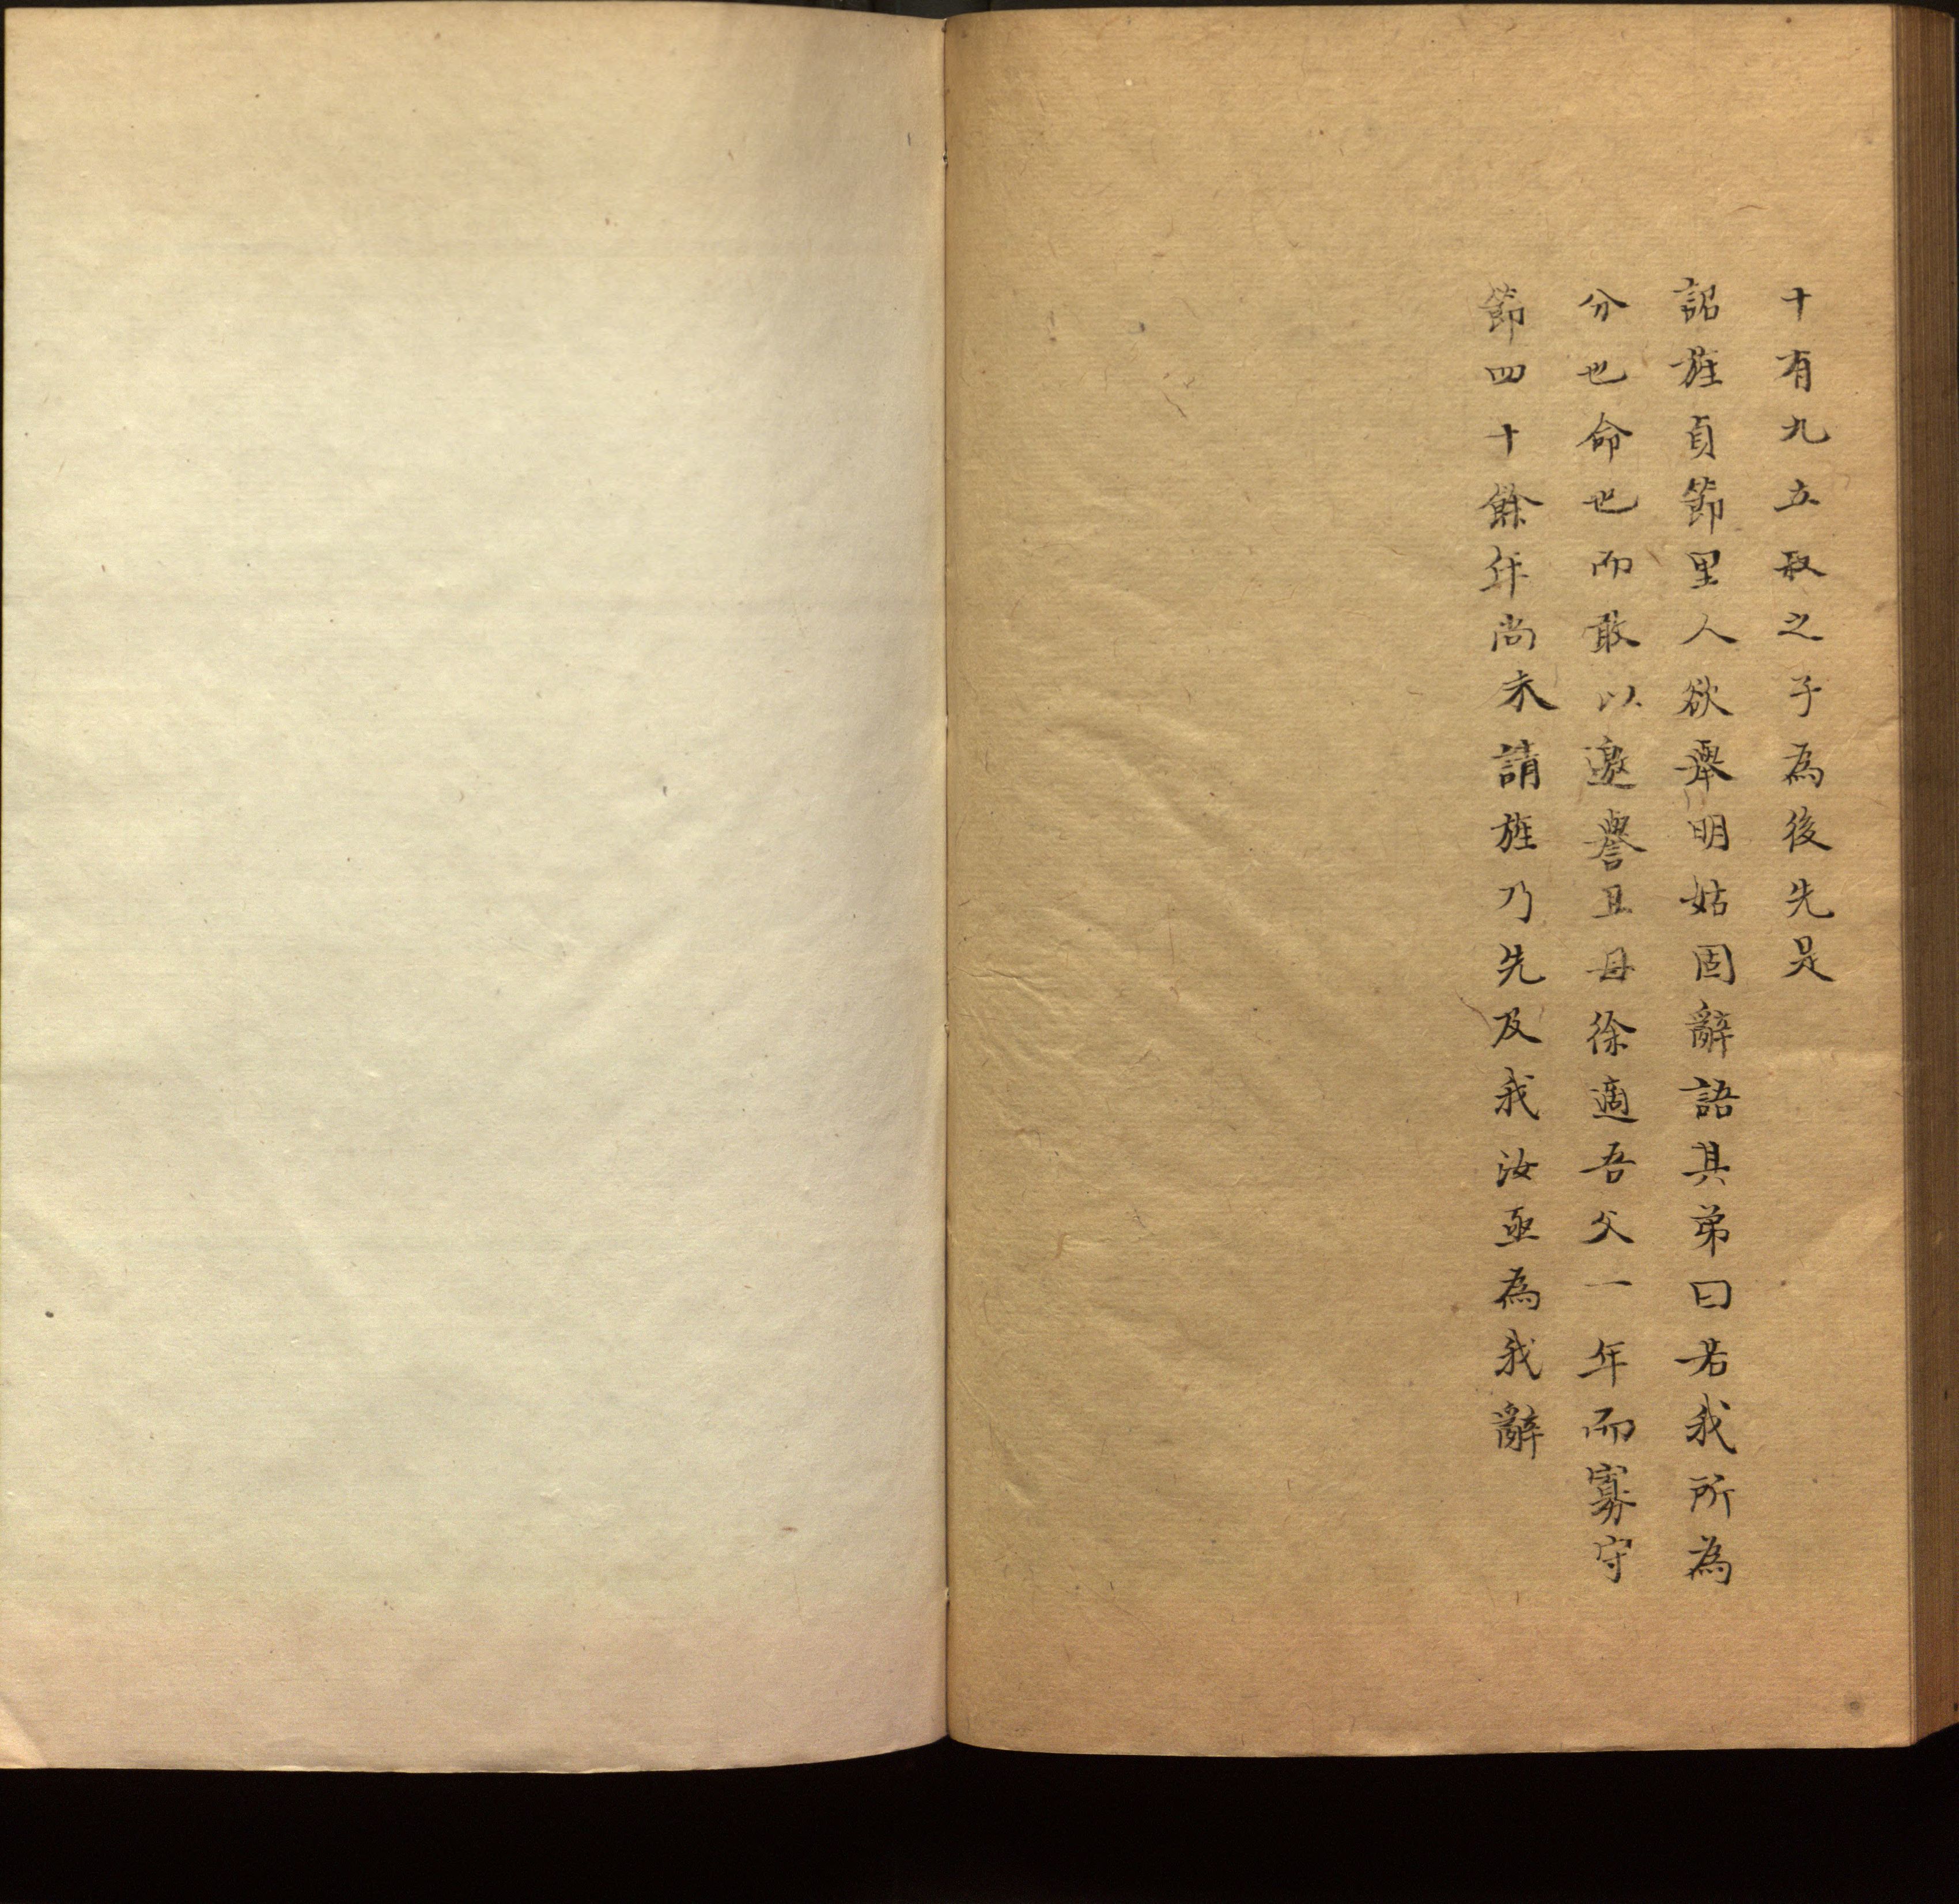 十有九立取之子為後先是
詔旌貞節里人欲舉明姑固辭語其弟曰若我所為
分也命也而敢以邀譽且母徐適吾父一年而寡守
節四十餘年尚未請旌乃先及我汝亟為我辭